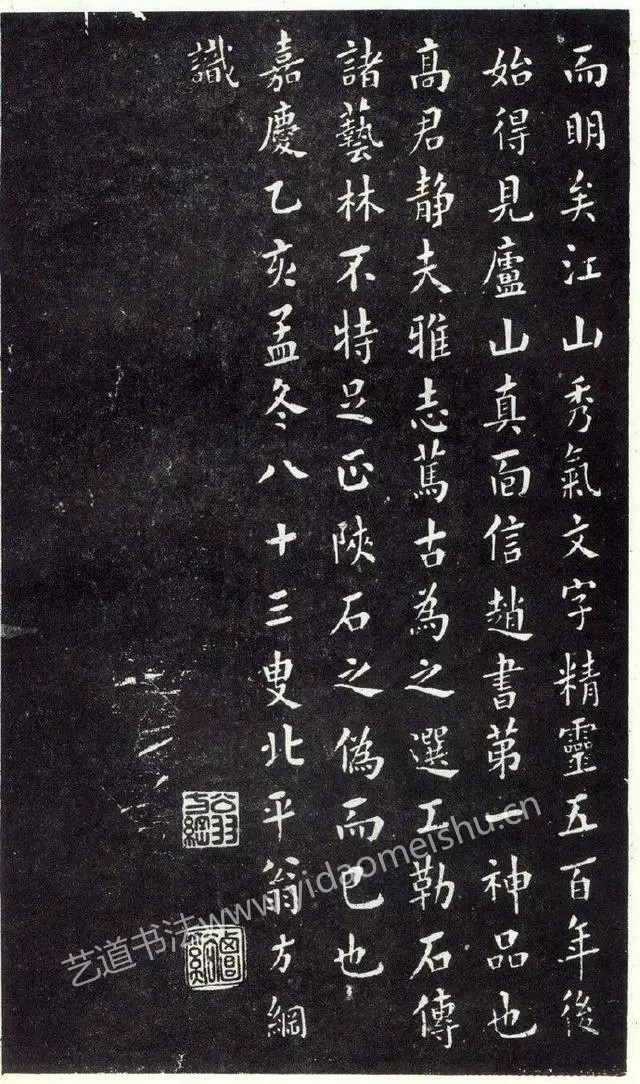 而明矣江山秀氣文字精靈五百年後
始得見廬山真面信趙書第一神品也
高君靜夫雅志篤古為之選工勒石傳
諸藝林不特足正陝石之偽而已也
嘉慶乙亥孟冬八十三叟北平翁方綱
識
翁方綱
艺道书法www.yidaomeishu.cn